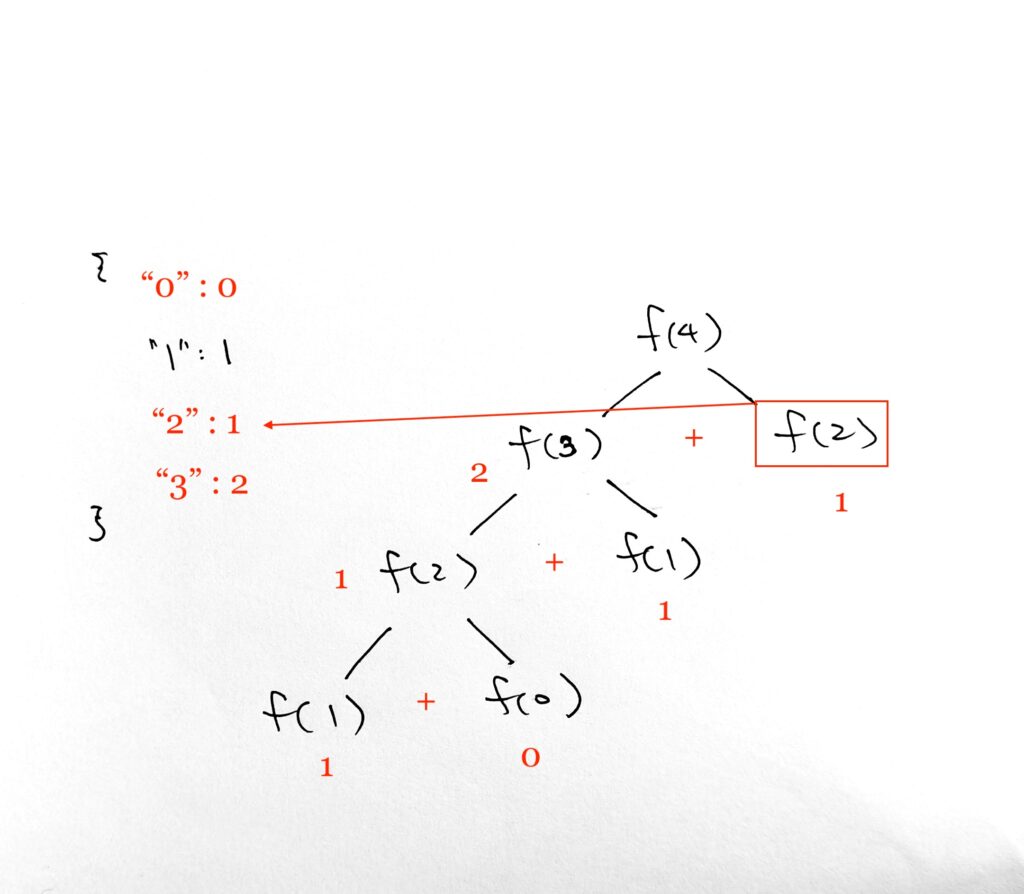 {
“0” : 0
"1" : 1
“2” : 1
“3” : 2
}
f(4)
f(3) + f(2)
2
1
1 f(2) + f(1)
1
f(1) + f(0)
1 0